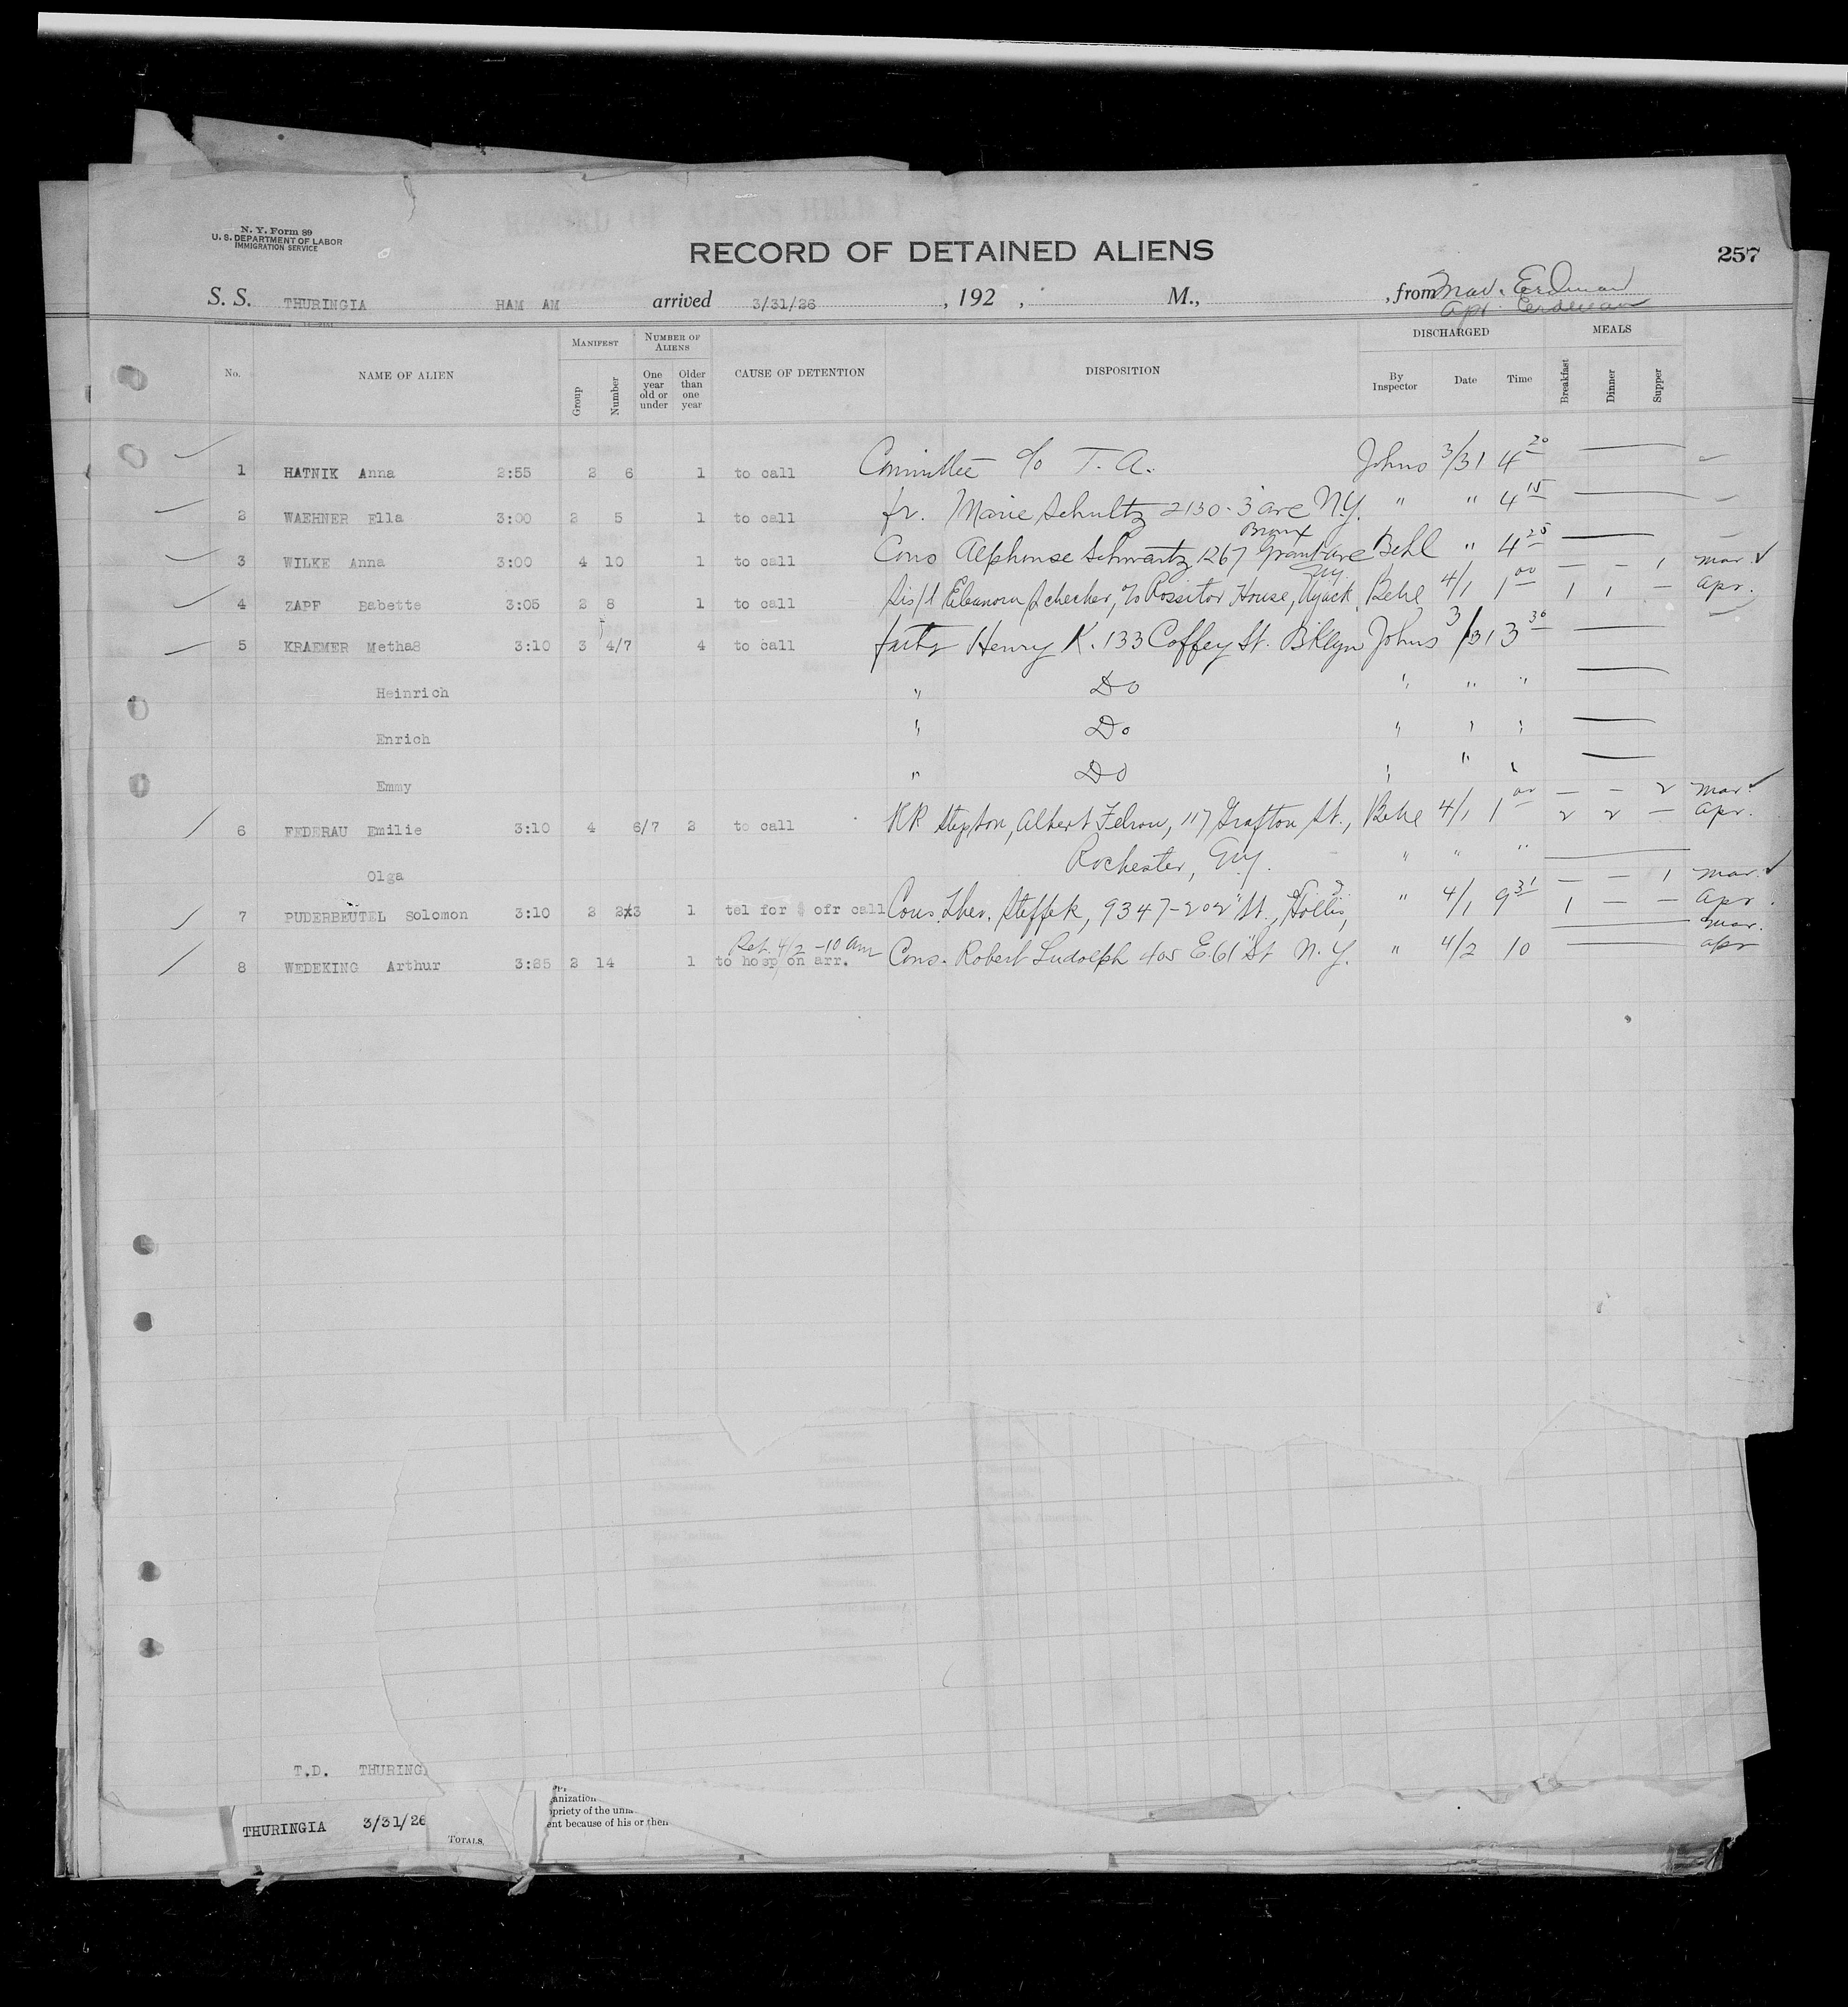 N. Y. Form 89
U. S. DEPARTMENT OF LABOR
IMMIGRATION SERVICE
RECORD OF DETAINED ALIENS
257
S. S. THURINGIA HAM AM arrived 3/31/26 , 192 , M., , from Mar. Erdman
Apr. Erdman
No. NAME OF ALIEN MANIFEST Group Number NUMBER OF ALIENS One year old or under Older than one year CAUSE OF DETENTION DISPOSITION DISCHARGED By Inspector Date Time MEALS Breakfast Dinner Supper
1 HATNIK Anna 2:55 2 6 1 to call Committee c/o T. A. Johns 3/31 4 20 —
2 WAEHNER Ella 3:00 2 5 1 to call fr. Marie Schultz 2130 - 3 ave N.Y. " " 4 15 —
Bronx
3 WILKE Anna 3:00 4 10 1 to call Cons Alphonse Schwartz 1267 Grant ave Behl " 4 25 —
N.Y. — — 1 Mar. ✓
4 ZAPF Babette 3:05 2 8 1 to call Sis/l Eleanora Schecher, c/o Rossitor House, Nyack, Behl 4/1 1 00 1 1 — Apr.
5 KRAEMER Metha8 3:10 3 4/7 4 to call Henry K. 133 Coffey St. Bklyn Johns 3/31 3 30 —
Heinrich " Do " " " —
Enrich " Do " " " —
Emmy " Do " " " —
— — 2 Mar. ✓
6 FEDERAU Emilie 3:10 4 6/7 2 to call RR Stepson, Albert 117 Grafton St., Behl 4/1 1 00 2 2 — Apr.
Olga Rochester, N.Y. " " " —
— — 1 Mar. ✓
7 PUDERBEUTEL Solomon 3:10 2 2x3 1 tel for ofr call Cons. Steffek, 9347-202" St., Hollis, " 4/1 9 31 1 — — Apr.
Ret. 4/2 - 10 am — Mar.
8 WEDEKING Arthur 3:25 2 14 1 to hosp on arr. Cons. Robert Ludolph 405 E. 61" St N. Y. " 4/2 10 — Apr
T.D. THURING
THURINGIA 3/31/26
TOTALS
anization
opriety of the
ent because of his or then